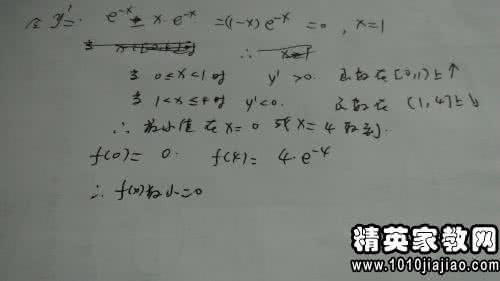 令 y' = e^{-x} - x·e^{-x} = (1-x)e^{-x} = 0, x=1
当 0≤x<1时 y'>0. 函数在[0,1)上↑
当 1<x≤4时 y'<0. 函数在(1,4]上↓
∴最小值在x=0或x=4取到.
f(0)=0. f(4)=4·e^{-4}
∴f(x)最小=0
精英家教网
www.1010jiajiao.com